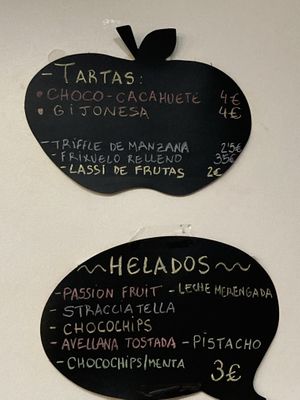 - TARTAS:
• CHOCO-CACAHUETE 4€
• GIJONESA 4€
- TRIFFLE DE MANZANA 2'5€
- FRIXUELO RELLENO 3'5€
- LASSI DE FRUTAS 2€
~ HELADOS ~
- PASSION FRUIT - LECHE MERENGADA
- STRACCIATELLA
- CHOCOCHIPS
- AVELLANA TOSTADA - PISTACHO
- CHOCOCHIPS/MENTA 3€